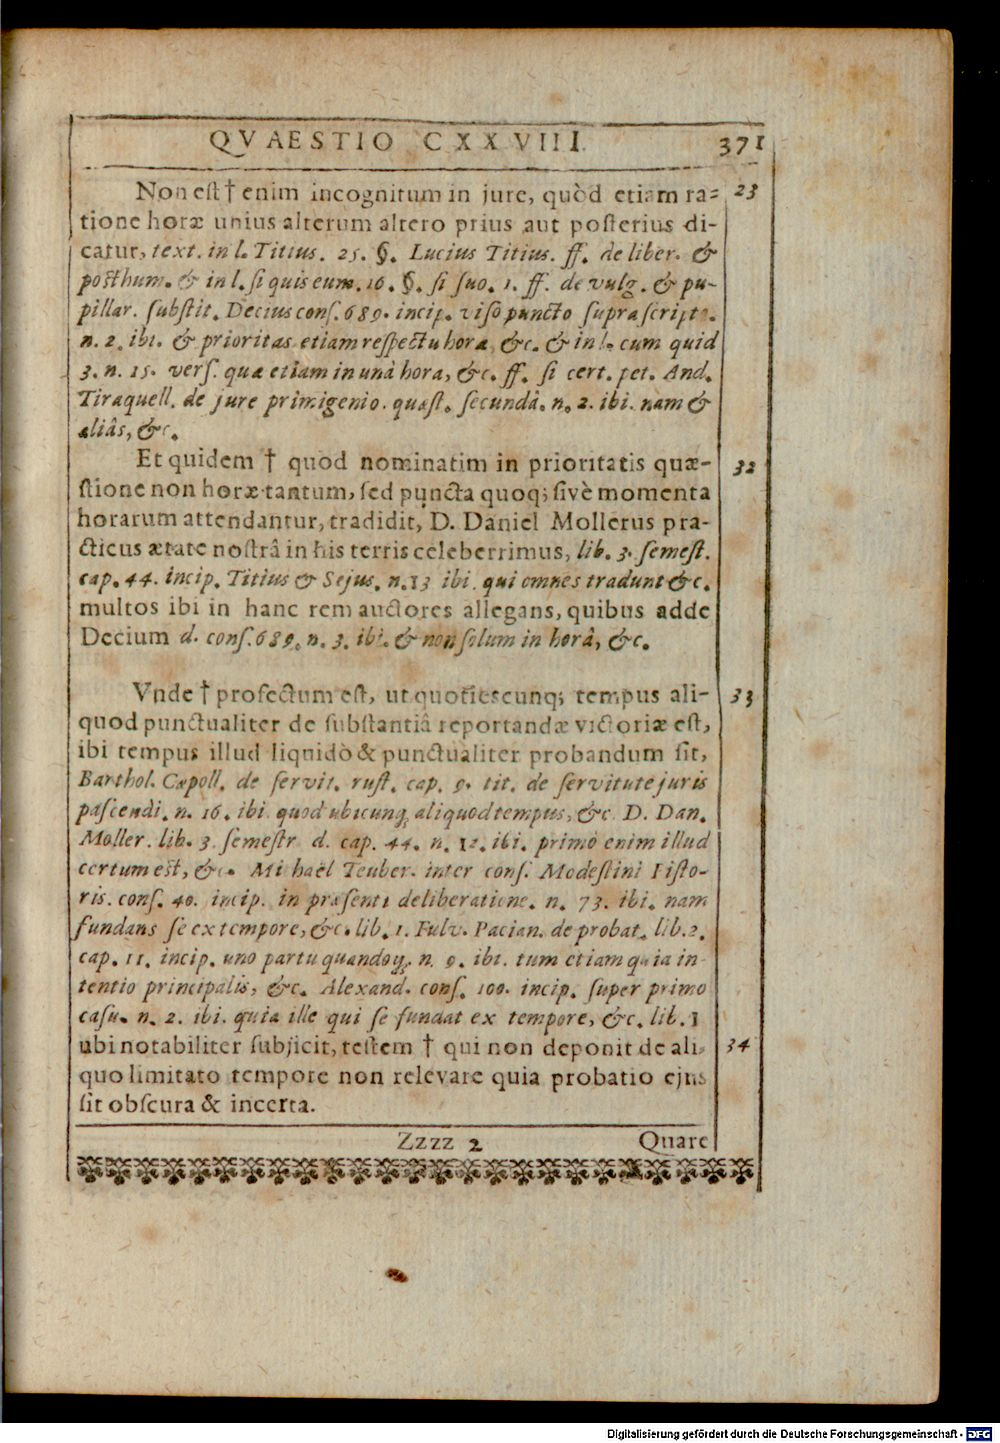 QVAESTIO CXXVIII. 371
Non est † enim incognitum in jure, quòd etiam ra- 23
tione horæ unius alterum altero prius aut posterius di-
catur, text. in l. Titius. 25. §. Lucius Titius. ff. de liber. &
posthum. & in l. si quis eum. 16. §. si suo. 1. ff. de vulg. & pu-
pillar. substit. Decius cons. 689. incip. viso puncto suprascript.
n. 2. ibi. & prioritas etiam respectu horæ, &c. & in l. cum quid
3. n. 15. vers. quæ etiam in unâ hora, &c. ff. si cert. pet. And.
Tiraquell. de jure primigenio. quæst. secundâ. n. 2. ibi. nam &
aliâs, &c.
Et quidem † quòd nominatim in prioritatis quæ- 32
stione non horæ tantum, sed puncta quoq; sivè momenta
horarum attendantur, tradidit, D. Daniel Mollerus pra-
cticus ætate nostrâ in his terris celeberrimus, lib. 3. semest.
cap. 44. incip. Titius & Sejus. n. 13 ibi. qui omnes tradunt &c.
multos ibi in hanc rem auctores allegans, quibus adde
Decium d. cons. 689. n. 3. ibi. & non solum in horâ, &c.
Vnde † profectum est, ut quotiescunq; tempus ali- 33
quod punctualiter de substantiâ reportandæ victoriæ est,
ibi tempus illud liquidò & punctualiter probandum sit,
Barthol. Cæpoll. de servit. rust. cap. 9. tit. de servitute juris
pascendi. n. 16. ibi. quod ubicunq; aliquod tempus, &c. D. Dan.
Moller. lib. 3. semestr. d. cap. 44. n. 12. ibi. primò enim illud
certum est, &c. Michaël Teuber. inter cons. Modestini Pisto-
ris. cons. 40. incip. in præsenti deliberatione. n. 73. ibi. nam
fundans se ex tempore, &c. lib. 1. Fulv. Pacian. de probat. lib. 2.
cap. 11. incip. uno partu quandoq; n. 9. ibi. tum etiam quia in-
tentio principalis, &c. Alexand. cons. 100. incip. super primo
casu. n. 2. ibi. quia ille qui se fundat ex tempore, &c. lib. 1
ubi notabiliter subjicit, testem † qui non deponit de ali- 34
quo limitato tempore non relevare quia probatio ejus
sit obscura & incerta.
Zzzz 2 Quare
Digitalisierung gefördert durch die Deutsche Forschungsgemeinschaft - DFG